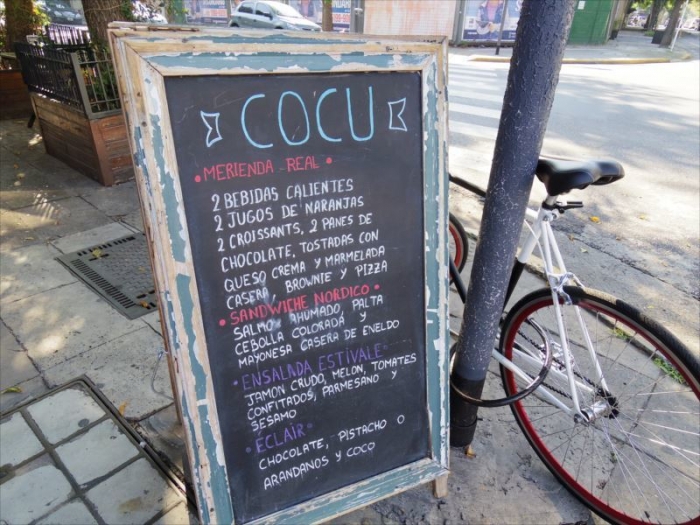 COCU
MERIENDA REAL
2 BEBIDAS CALIENTES
2 JUGOS DE NARANJAS
2 CROISSANTS, 2 PANES DE
CHOCOLATE, TOSTADAS CON
QUESO CREMA Y MARMELADA
CASERA, BROWNIE Y PIZZA
• SANDWICHE NORDICO •
SALMON AHUMADO, PALTA
CEBOLLA COLORADA Y
MAYONESA CASERA DE ENELDO
• ENSALADA ESTIVALE •
JAMON CRUDO, MELON, TOMATES
CONFITADOS, PARMESANO Y
SESAMO
• ÉCLAIR •
CHOCOLATE, PISTACHO O
ARANDANOS Y COCO